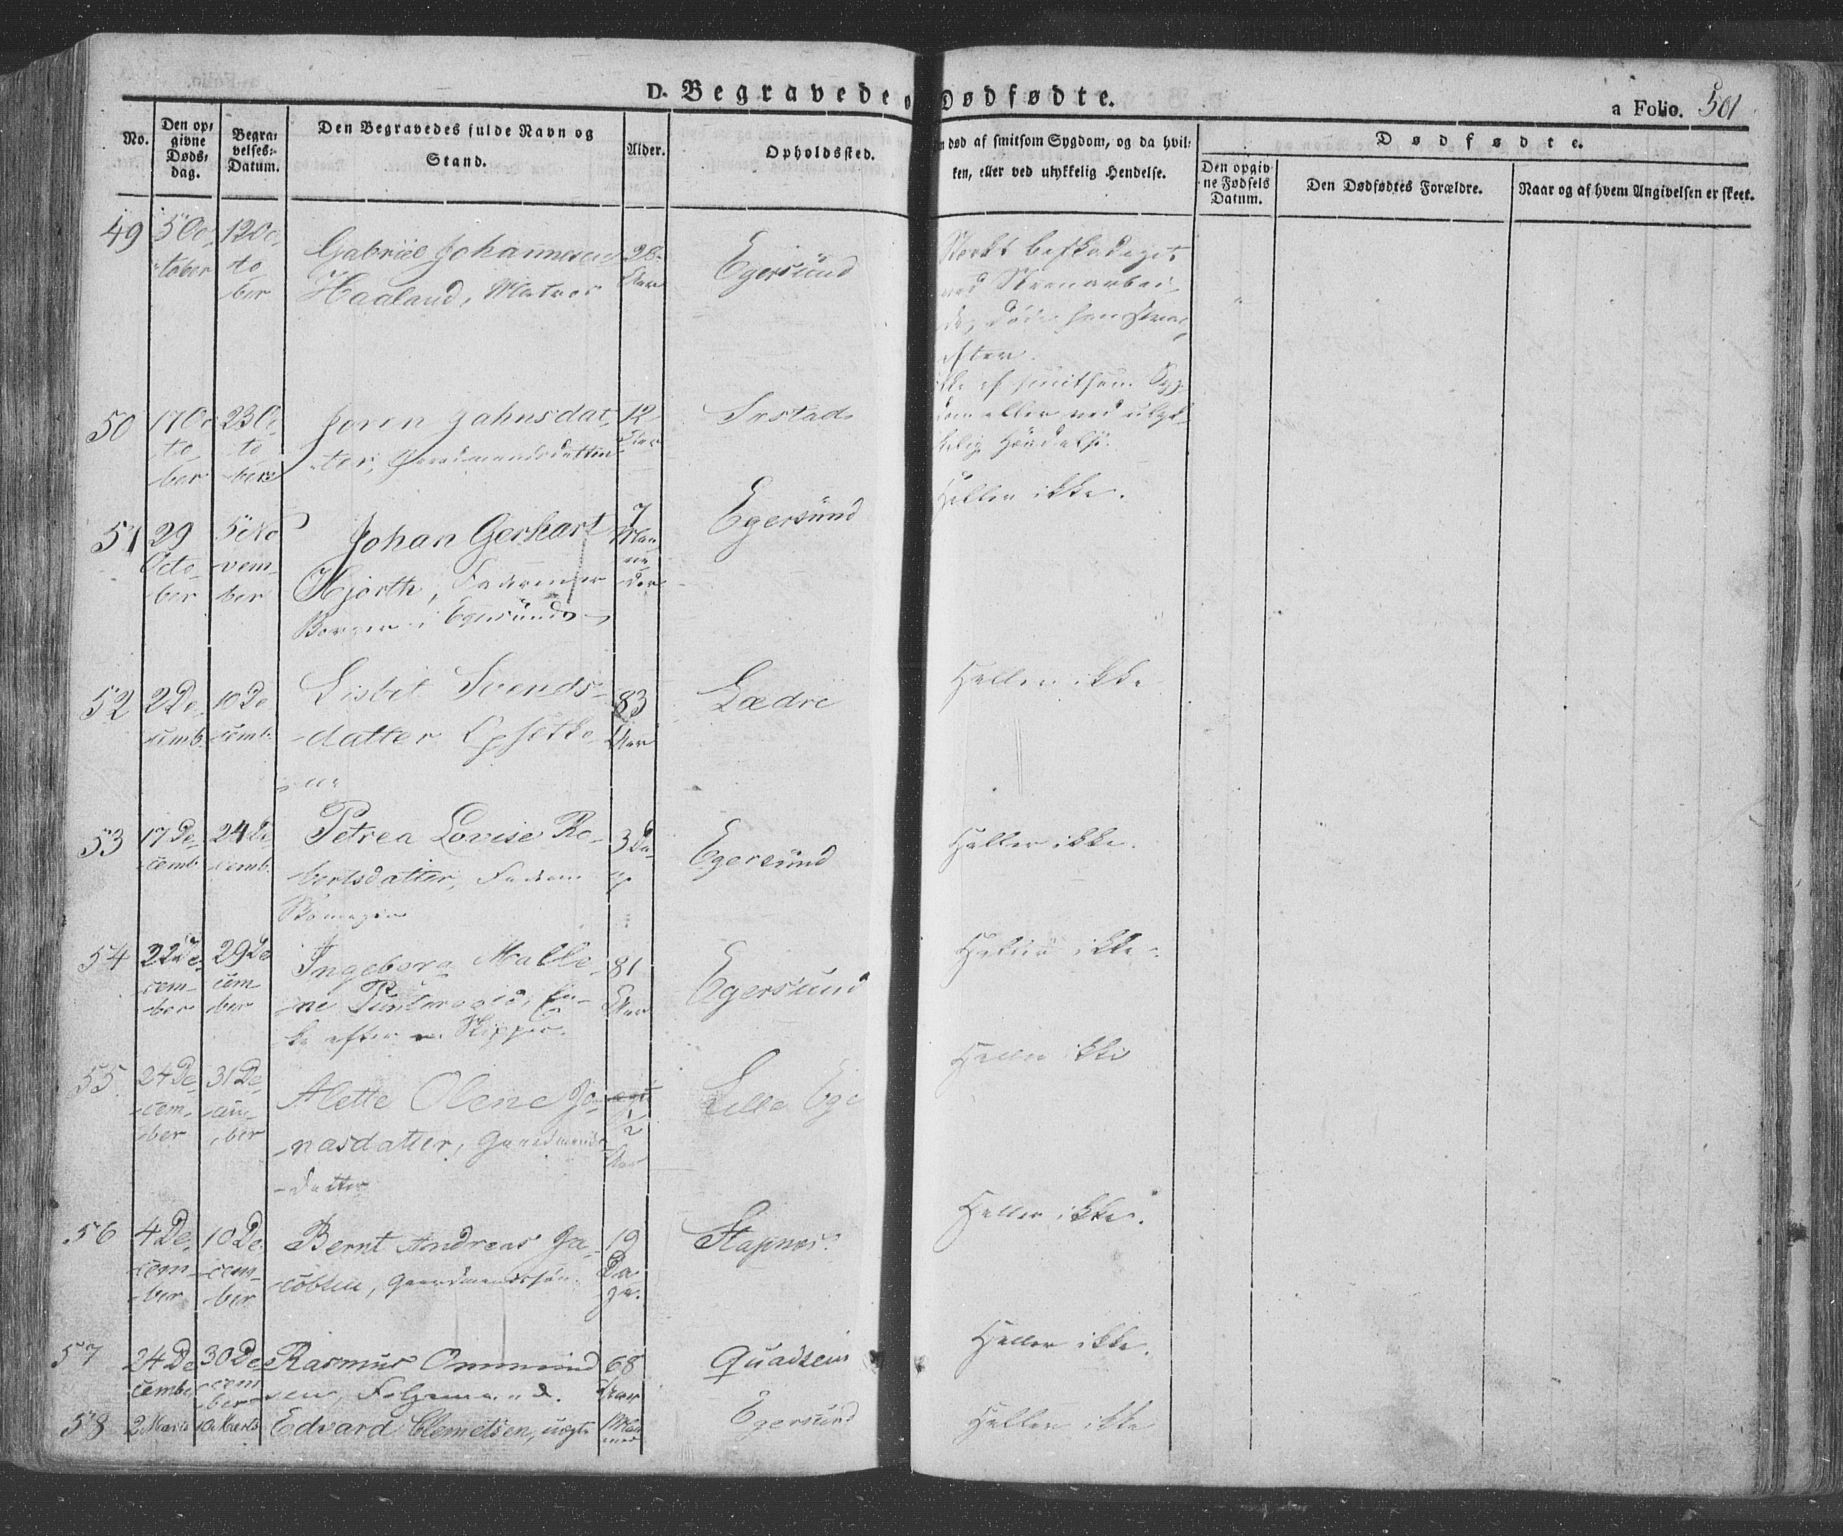 D. Begravede o
Dødfødte.
a Folio. 501
No.
Den op-
givne
Døds-
dag.
Begra-
velses-
Datum.
Den Begravedes fulde Navn og
Stand.
Alder.
Opholdssted.
død af smitsom Sygdom, og da hvil-
ken, eller ved ulykkelig Hendelse.
Dødfødte.
Den opgiv-
ne Fødsels
Datum.
Den Dødfødtes Forældre.
Naar og af hvem Angivelsen er skeet.
49
5 Oc-
tober
12 Oc-
to-
ber
Gabriel Johannesen
Haaland, Matros
Aar
Egersund
beskadiget
ved
døde
efter.
50
17 Oc-
to-
ber
23 Oc-
to-
ber
Joren Jahnsdat-
ter, Gaardmandsdatter
12
Aar
af smitsom Syg-
dom eller ved ulyk-
kelig Hændelse.
51
29
Octo-
ber
5 No-
vem-
ber
Johan Gerhart
Hjorth, Faderen er
Borger i Egersund
7
Maa-
ne-
der
Egersund
Heller ikke.
52
2 De-
cemb.
10 De-
cemb.
Lisbet Svends-
datter
83
Aar
Gædre
Heller ikke
53
17 De-
cemb.
24 De-
cemb.
Petrea Lovise Ro-
bertsdatter, Faderen
3 Da-
ge
Egersund
Heller ikke.
54
22 De-
cem-
ber
29 De-
cem-
ber
Ingeborg Malle-
ne En-
ke efter en Skipper.
81
Aar
Egersund
Heller ikke.
55
24 De-
cem-
ber
31 De-
cem-
ber
Alette Olene Jo-
nasdatter, Gaardmands-
datter
1/2
Aar
Lille Ege
Heller ikke
56
4 De-
cem-
ber
10 De-
cem-
ber
Bernt Andreas Ja-
cobsen, Gaardmandssøn.
19
Da-
ge.
Stapnes.
Heller ikke.
57
24 De-
cember
30 De-
cem-
ber
Rasmus Ommund-
sen,
68
Aar
Quadsem
Heller ikke.
58
2 Marts
10 Marts
Edvard Clemetsen, uægte
Egersund
Heller ikke